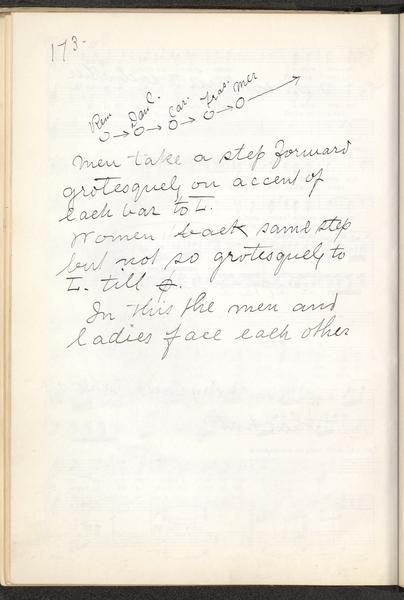 173-
Rem Danl. Car. Fras. Mer
Men take a step forward
grotesquely on accent of
each bar to L.
Women back same step
but not so grotesquely to
L. till
In this the men and
ladies face each other